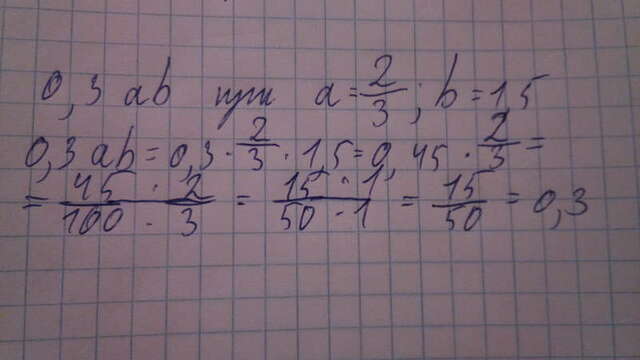 0,3 ab при a = 2/3; b = 1,5
0,3 ab = 0,3 · 2/3 · 1,5 = 0,45 · 2/3 =
= 45 · 2 / 100 · 3 = 15 · 1 / 50 · 1 = 15/50 = 0,3